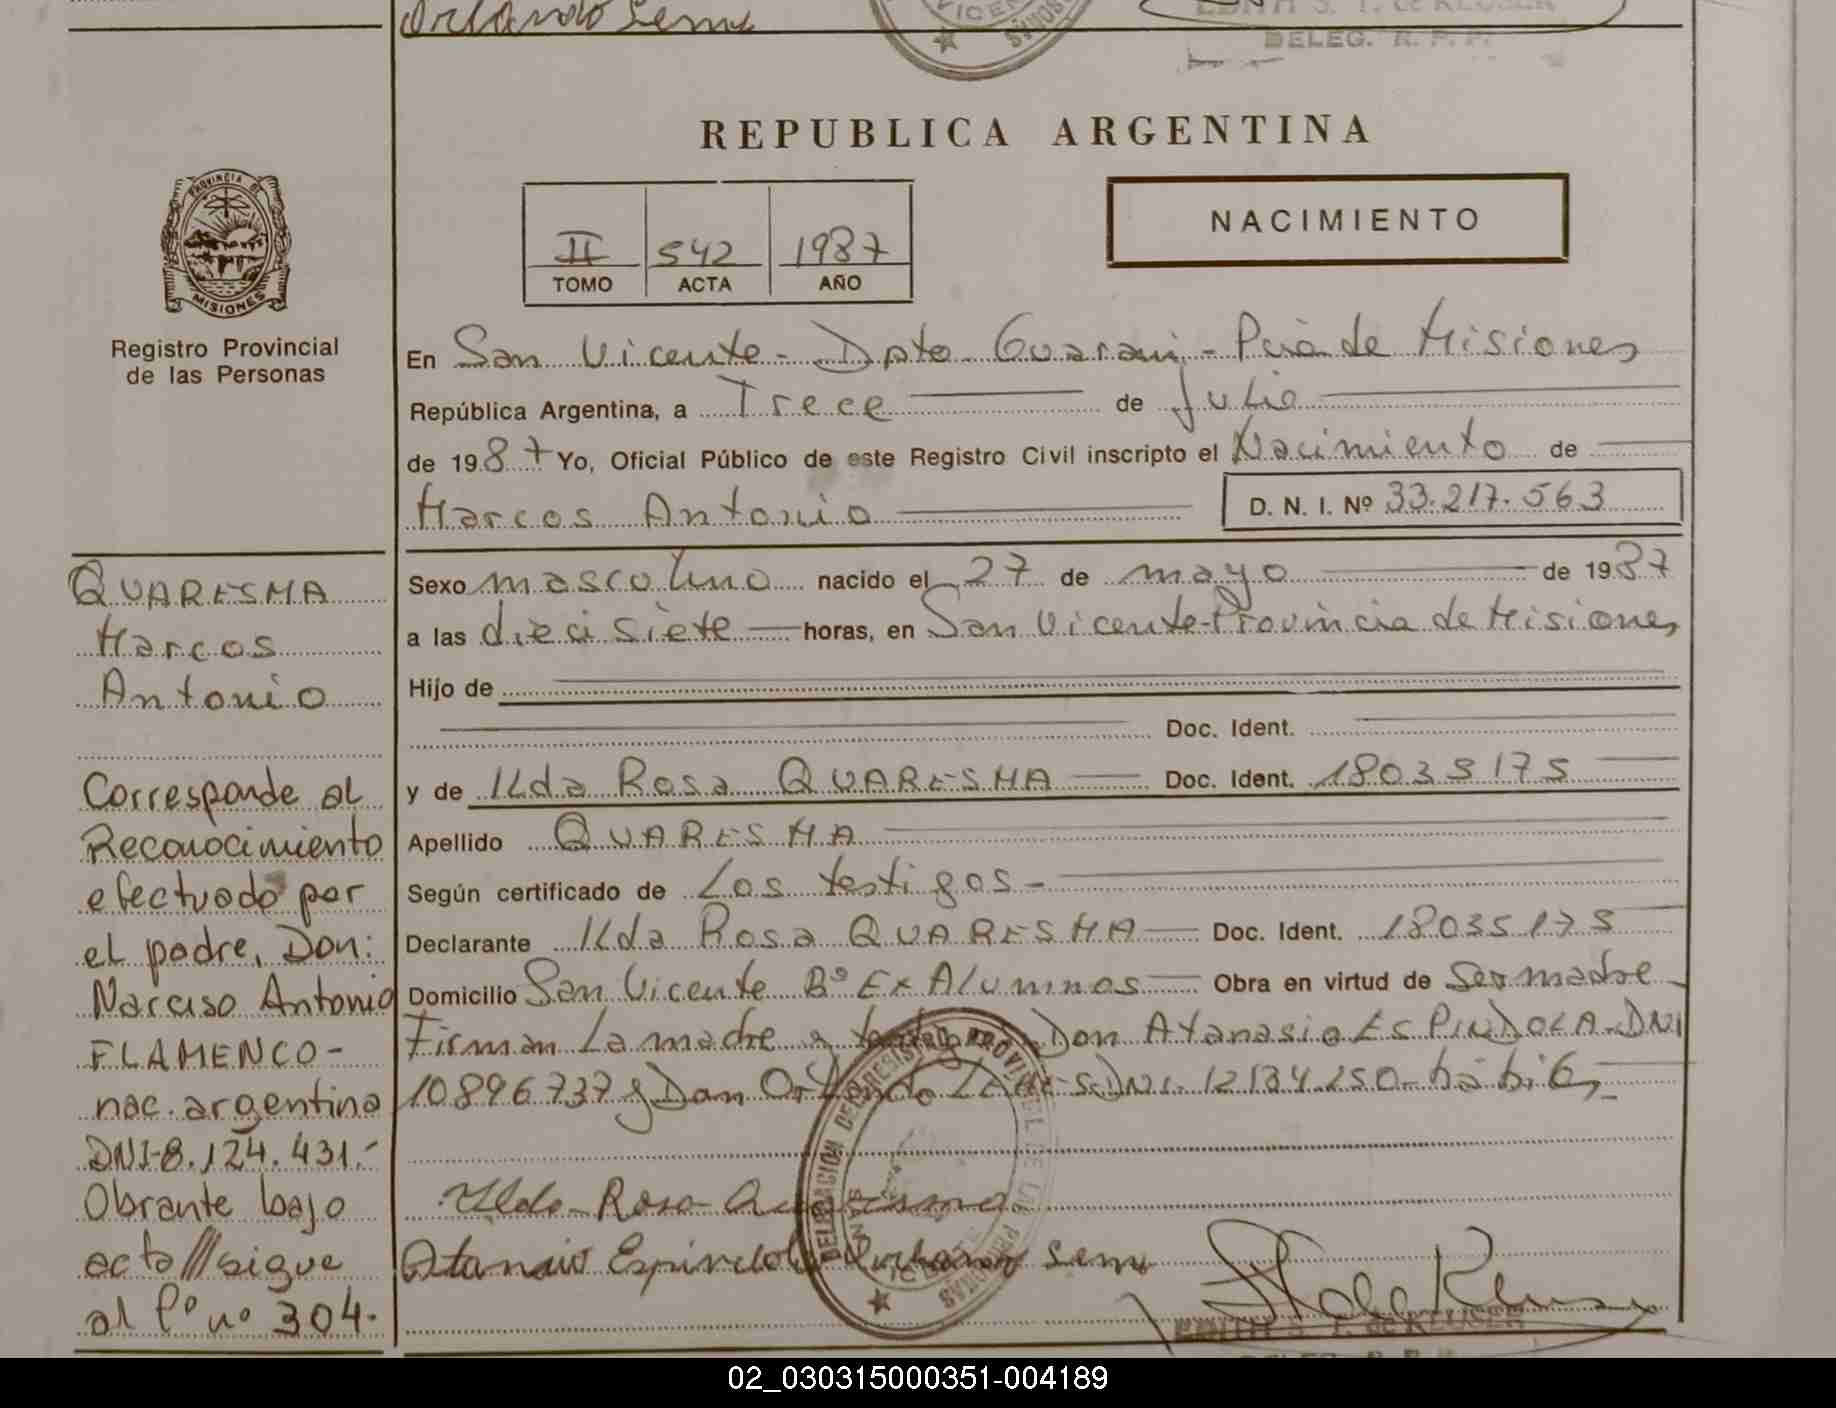 Orlando Sem
VICEN
EDITH S. T. de KEUSER
DELEG. R. P. P.
REPUBLICA ARGENTINA
PROVINCIA DE
MISIONES
Registro Provincial
de las Personas
NACIMIENTO
II 542 1987
TOMO ACTA AÑO
En San Vicente - Dpto Guarani - Pcia de Misiones
República Argentina, a Trece de Julio
de 1987 Yo, Oficial Público de este Registro Civil inscripto el Nacimiento de
Marcos Antonio D. N. I. Nº 33.217.563
QUARESMA
Marcos
Antonio
Corresponde al
Reconocimiento
efectuado por
el padre, Don:
Narciso Antonio
FLAMENCO-
nac. argentina
DNI-8.124.431.-
Obrante bajo
acta//sigue
al fº nº 304.
Sexo masculino nacido el 27 de mayo de 1987
a las diecisiete horas, en San Vicente-Provincia de Misiones
Hijo de
Doc. Ident.
y de Ilda Rosa QUARESMA Doc. Ident. 18035175
Apellido QUARESMA
Según certificado de Los testigos-
Declarante Ilda Rosa QUARESMA Doc. Ident. 18035175
Domicilio San Vicente Bº Ex Alumnos Obra en virtud de Ser madre
Firman La madre y testigos Don Atanasio EsPINDOLA-DNI
10896737 y Don Orlando DNI. 12134250-hábil,-
Ilda Rosa Quaresma
Atanasio Espindola Sem
DELEGACION DEL REGISTRO PROVINCIAL DE LAS PERSONAS
EDITH S. T. de KEUSER
DELEG. R. P. P.
02_030315000351-004189